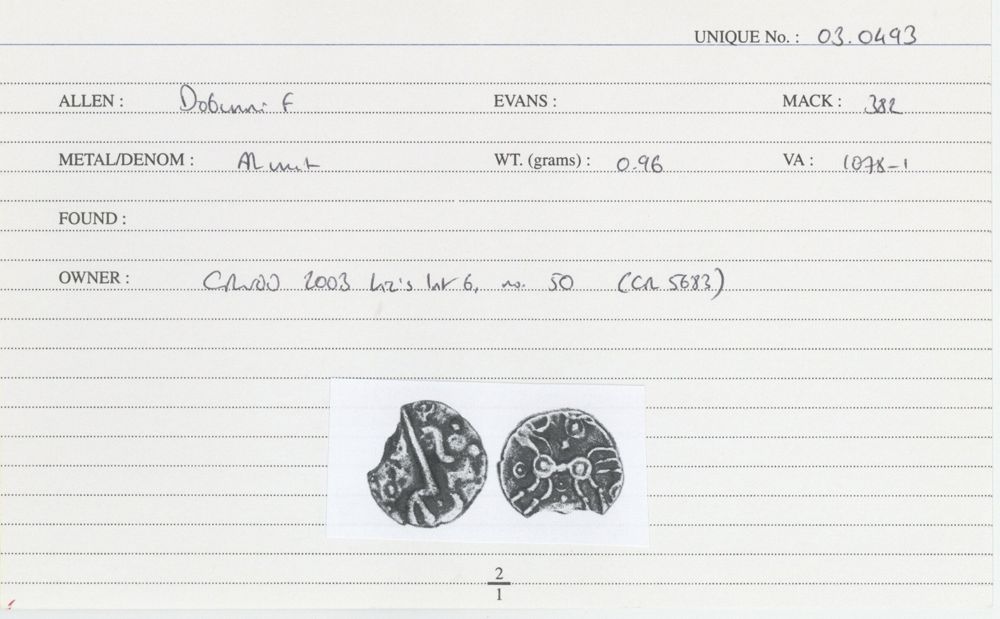 UNIQUE No. : 03.0493
ALLEN : Dobunni F EVANS : MACK : 382
METAL/DENOM : AR unit WT. (grams) : 0.96 VA : 1078-1
FOUND :
OWNER : 2003 Liz's list 6, no. 50 (CR 5683)
2
1